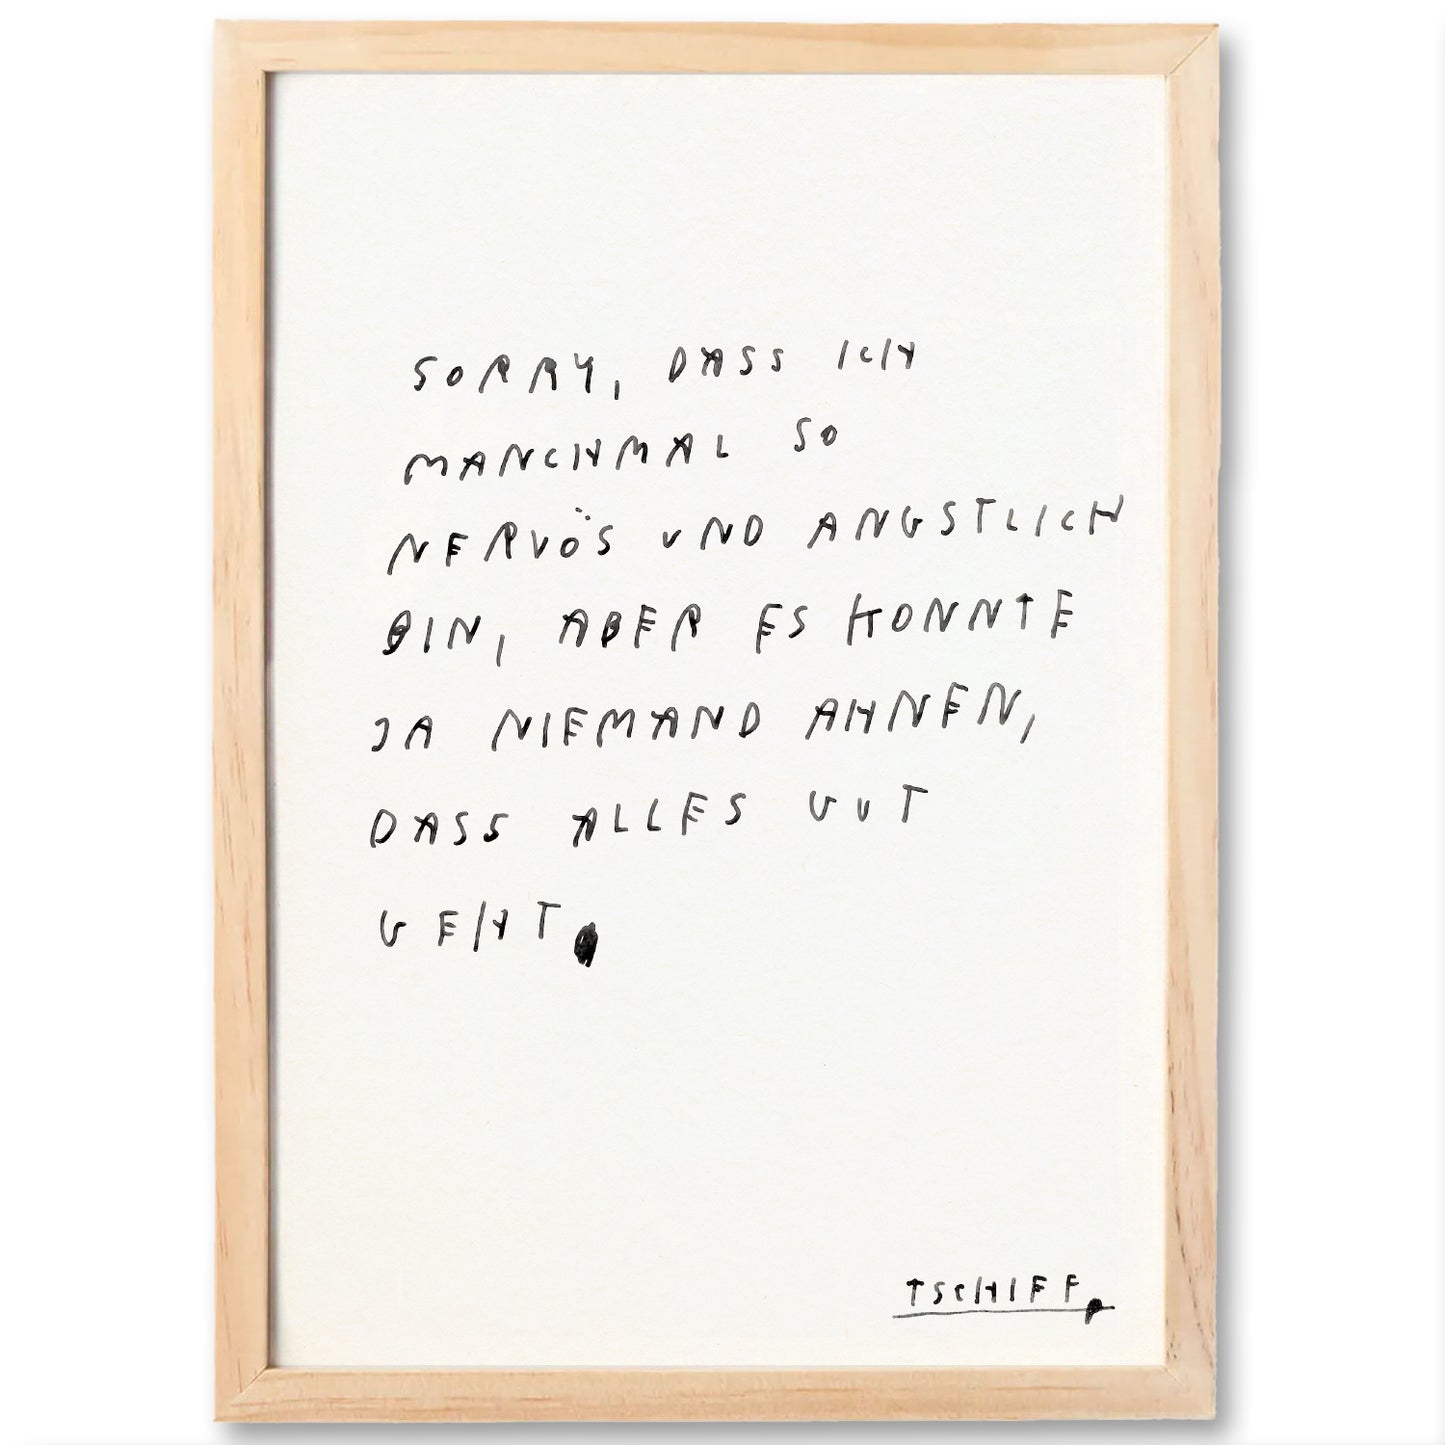 SORRY, DASS ICH
MANCHMAL SO
NERVÖS UND ANGSTLICH
BIN, ABER ES KONNTE
JA NIEMAND AHNEN,
DASS ALLES GUT
GEHT.
TSCHIFF.